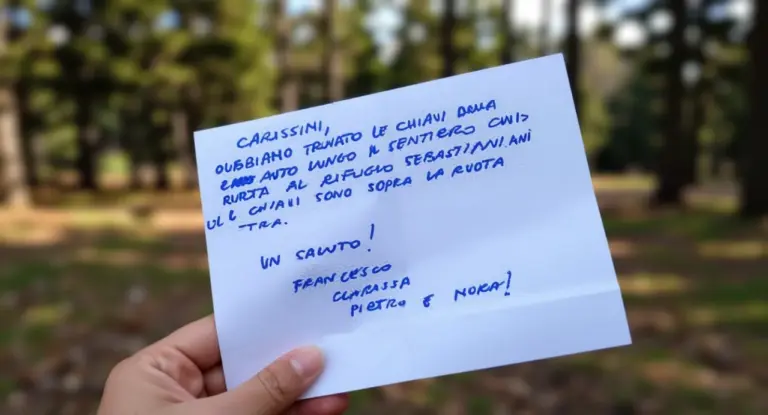 CARISSINI,
OUBBIAMO TRUVATO LE CHIAVI DELLA
AUTO LUNGO IL SENTIERO CHI>
RURTA AL RIFUGIO SEBASTINI. ANI
CHIAVI SONO SOPRA LA RUOTA
TRA.
UN SALUTO!
FRANCESCO
CLARASSA
PIETRO E NORA!